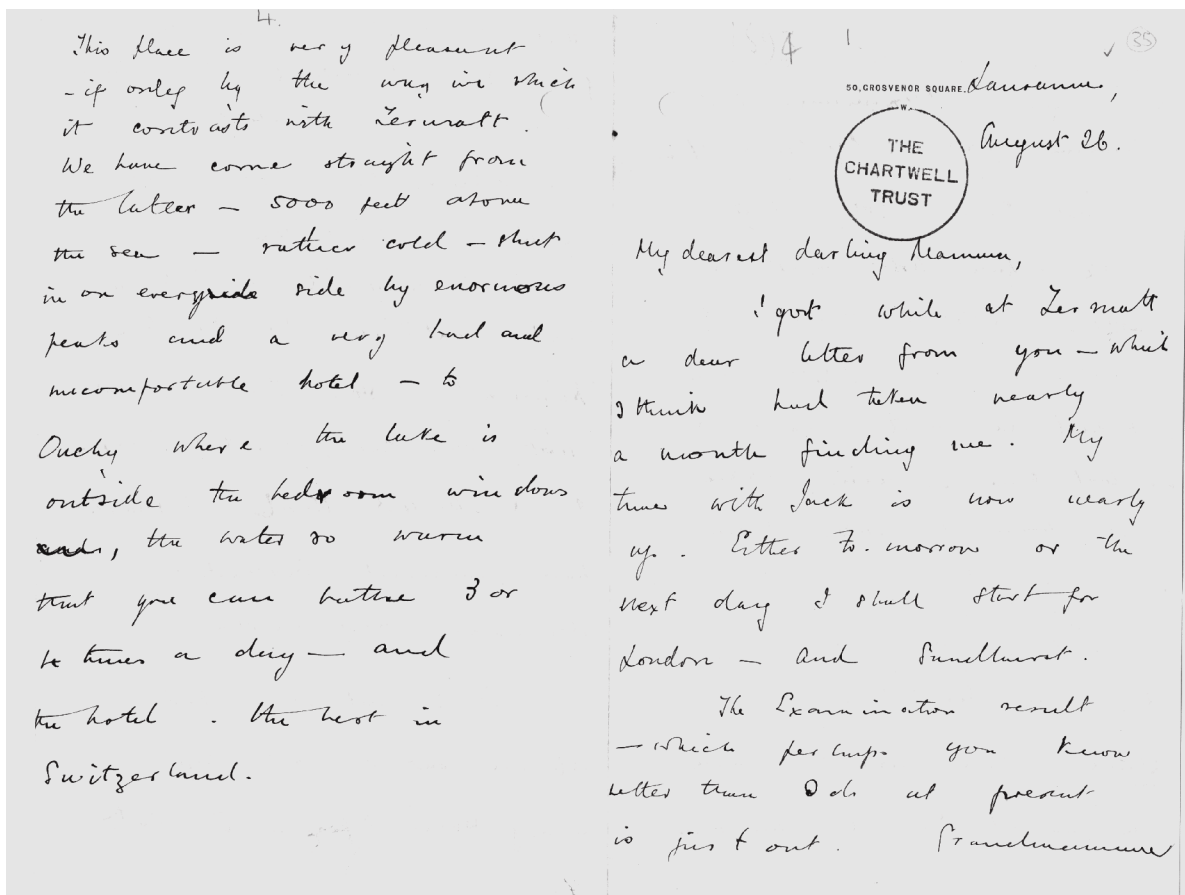 4.
This place is very pleasant
- if only by the way in which
it contrasts with Zermatt.
We have come straight from
the latter – 5000 feet above
the sea – rather cold – shut
in on every side by enormous
peaks and a very bad and
uncomfortable hotel – to
Ouchy where the lake is
outside the bedroom windows
, the water so warm
that you can bathe 3 or
4 times a day – and
the hotel . the best in
Switzerland.
4 1
35
50, GROSVENOR SQUARE. Lausanne,
W.
August 26.
THE
CHARTWELL
TRUST
My dearest darling Mamma,
I got while at Zermatt
a dear letter from you – which
I think had taken nearly
a month finding me. My
time with Jack is now nearly
up. Either To-morrow or the
next day I shall start for
London – and Sandhurst.
The Examination result
– which perhaps you know
better than I do at present
is just out. Grandmamma